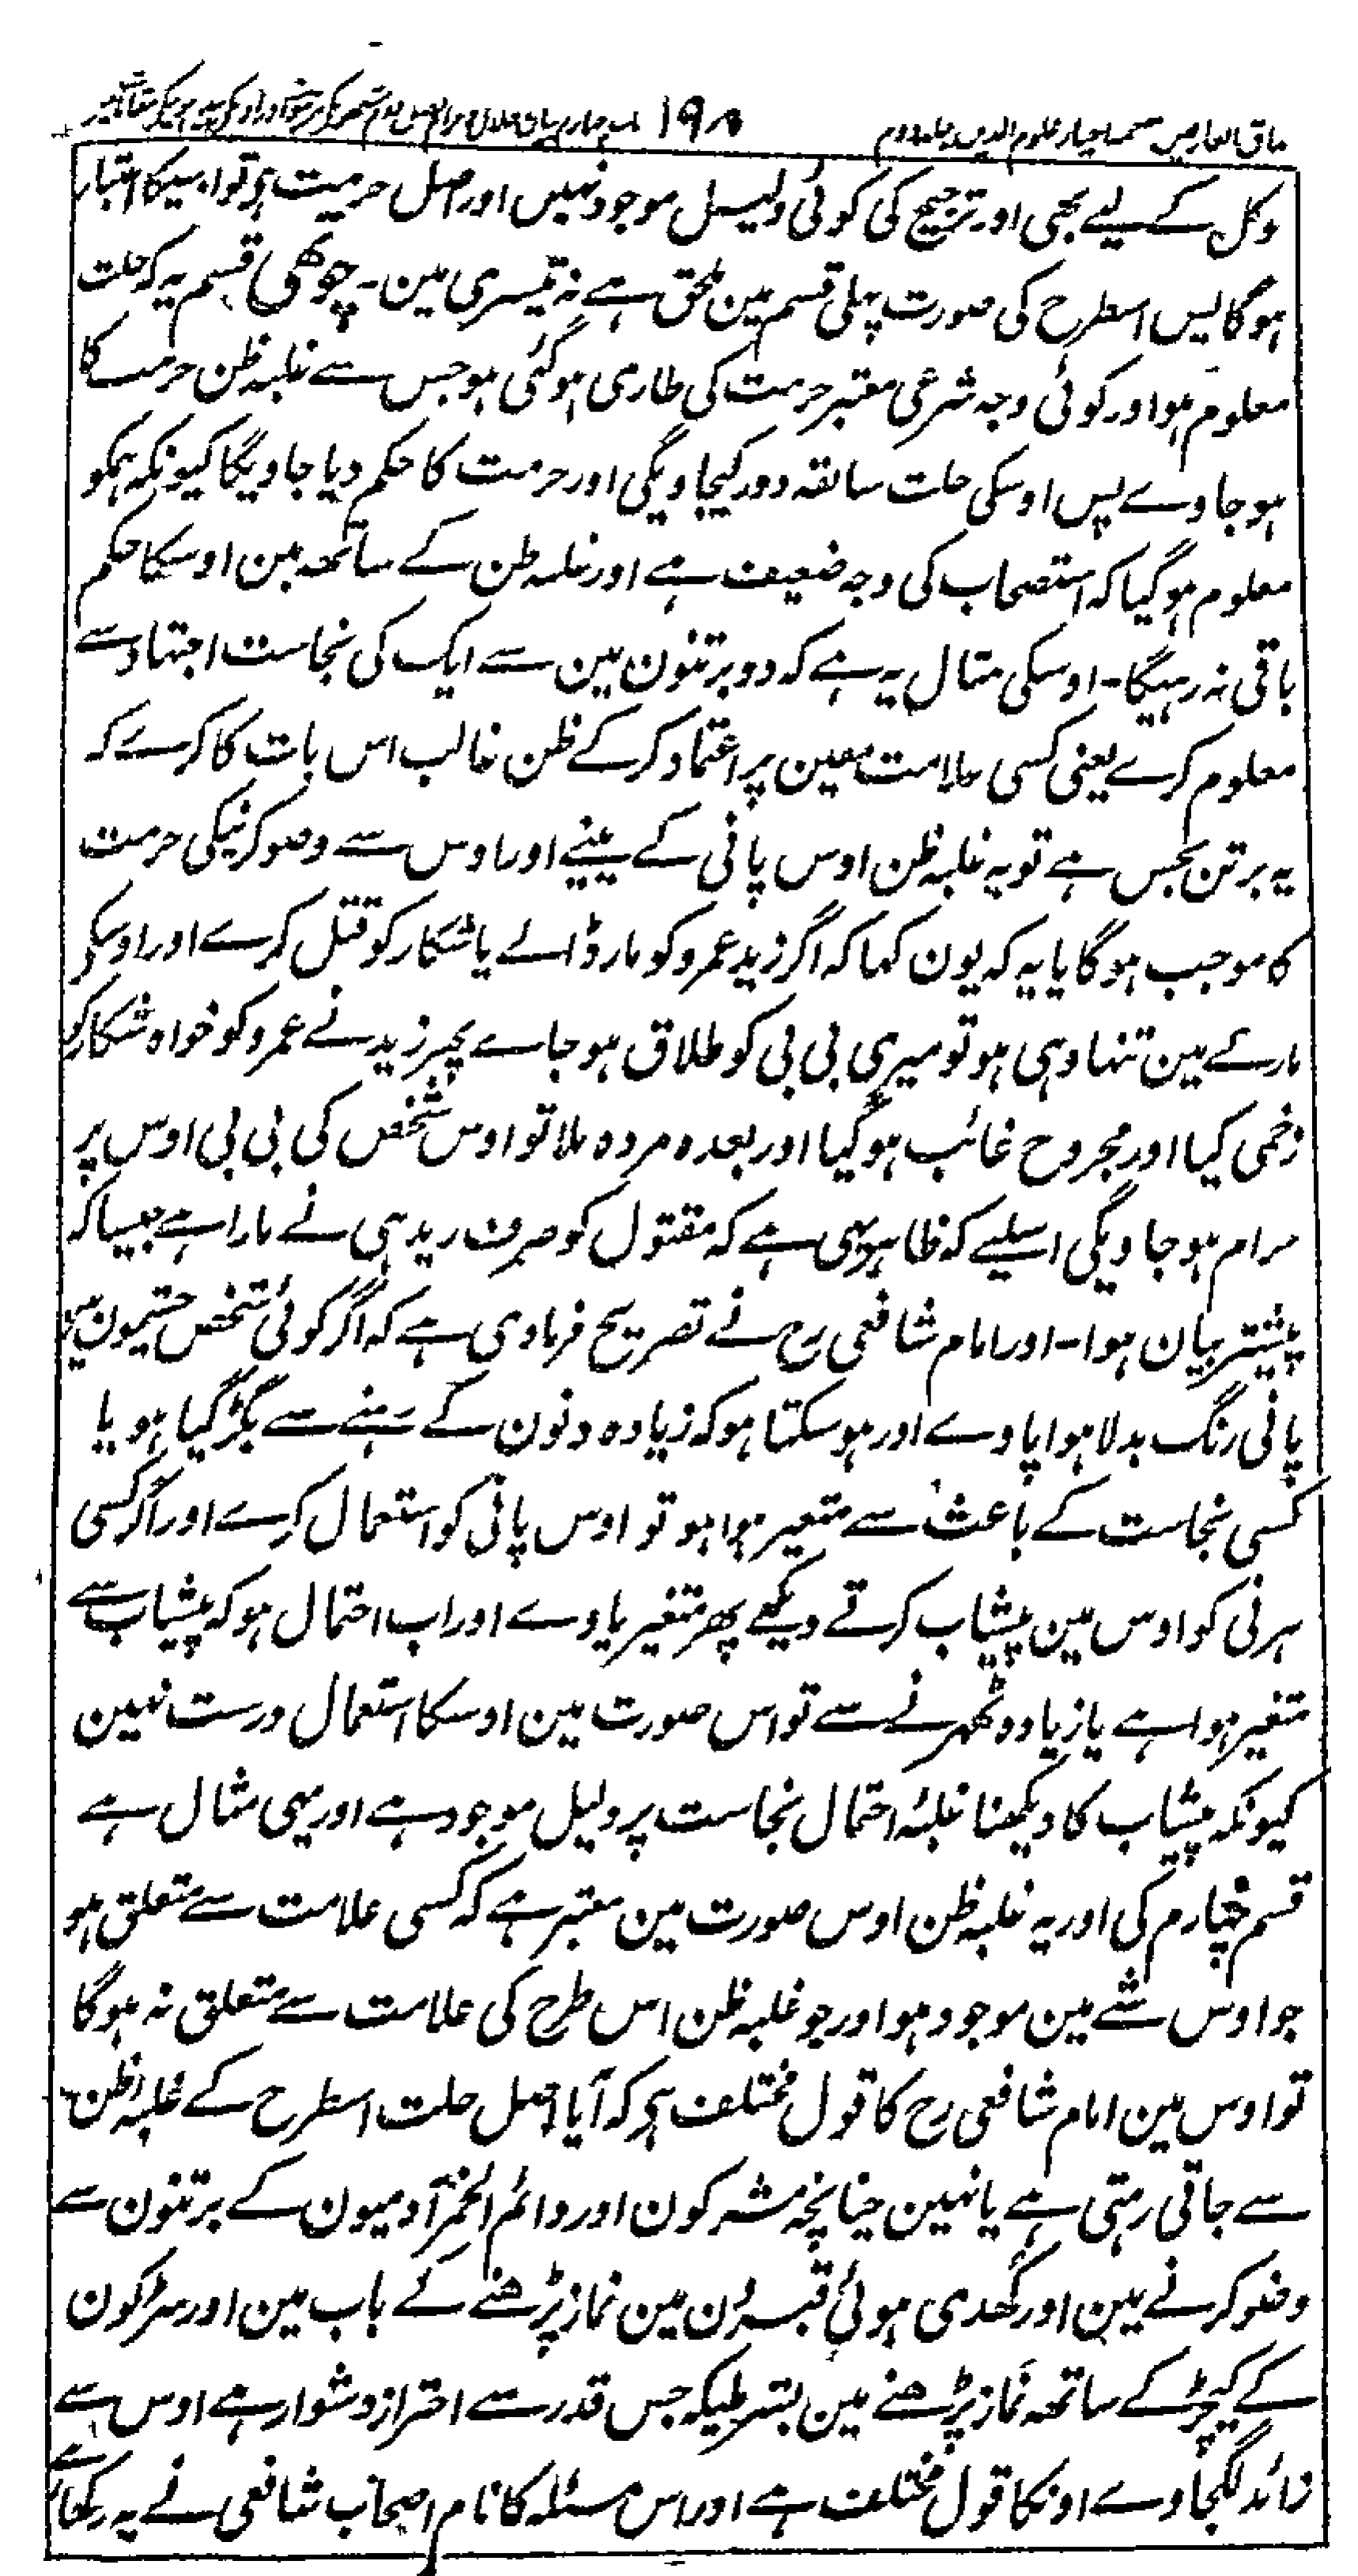 مذاق العارفین ترجمہ احیاء علوم الدین جلد دوم ۱۹۸
وکل کے لیے بھی اور ترجیح کی کوئی دلیل موجود نہیں اور اصل حرمت ہی تو اسیکا اعتبار
ہوگا پس اسطرح کی صورت پہلی قسم مین ملحق ہے نہ تیسری مین۔ چوتھی قسم یہ کہ حلت
معلوم ہو اور کوئی وجہ شرعی معتبر حرمت کی طاری ہو گئی ہو جس سے غلبہ ظن حرمت کا
ہو جاوے پس اوسکی حلت سابقہ دور کیجاویگی اور حرمت کا حکم دیا جاویگا کیونکہ ہمکو
معلوم ہو گیا کہ استصحاب کی وجہ ضعیف ہے اور غلبہ ظن کے ساتھ مین اوسکا حکم
باقی نہ رہیگا۔ اوسکی مثال یہ ہے کہ دو برتنون مین سے ایک کی نجاست اجتہاد سے
معلوم کرے یعنی کسی علامت معین پر اعتماد کر کے ظن غالب اس بات کا کرے کہ
یہ برتن نجس ہے تو یہ غلبہ ظن اوس پانی کے پینے اور اوس سے وضو کرنیکی حرمت
کا موجب ہوگا یا یہ کہ یون کہا کہ اگر زید عمرو کو مار ڈالے یا شکار کو قتل کرے اور اوسکے
مارنے مین تنہا وہی ہو تو میری بی بی کو طلاق ہو جاے پھر زید نے عمرو کو خواہ شکار کو
زخمی کیا اور مجروح غائب ہو گیا اور بعدہ مردہ ملا تو اوس شخص کی بی بی اوس پر
حرام ہو جاویگی اسلیے کہ ظاہر یہی ہے کہ مقتول کو صرف زید ہی نے مارا ہے جیسا کہ
پیشتر بیان ہوا۔ اور امام شافعی رح نے تصریح فرمادی ہے کہ اگر کوئی شخص چشمون مین
پانی رنگ بدلا ہوا پاوے اور ہو سکتا ہو کہ زیادہ دنون کے رہنے سے بگڑ گیا ہو یا
کسی نجاست کے باعث سے متغیر ہوا ہو تو اوس پانی کو استعمال کرے اور اگر کسی
ہرنی کو اوس مین پیشاب کرتے دیکھے پھر متغیر پاوے اور اب احتمال ہو کہ پیشاب سے
متغیر ہوا ہے یا زیادہ ٹھہرنے سے تو اس صورت مین اوسکا استعمال درست نہین
کیونکہ پیشاب کا دیکھنا غلبۂ احتمال نجاست پر دلیل موجود ہے اور یہی مثال ہے
قسم چہارم کی اور یہ غلبہ ظن اوس صورت مین معتبر ہے کہ کسی علامت سے متعلق ہو
جو اوس شے مین موجود ہو اور جو غلبہ ظن اس طرح کی علامت سے متعلق نہ ہوگا
تو اوس مین امام شافعی رح کا قول مختلف ہی کہ آیا اصل حلت اسطرح کے غلبہ ظن
سے جاتی رہتی ہے یا نہین چنانچہ مشرکون اور دائم الخمر آدمیون کے برتنون سے
وضو کرنے مین اور کھدی ہوئی قبرون مین نماز پڑھنے کے باب مین اور سڑکون
کے کیچڑ کے ساتھ نماز پڑھنے مین بشرطیکہ جس قدر سے احتراز دشوار ہے اوس سے
زائد لگجاوے اونکا قول مختلف ہے اور اس مسئلہ کا نام اصحاب شافعی نے یہ رکھا ہے